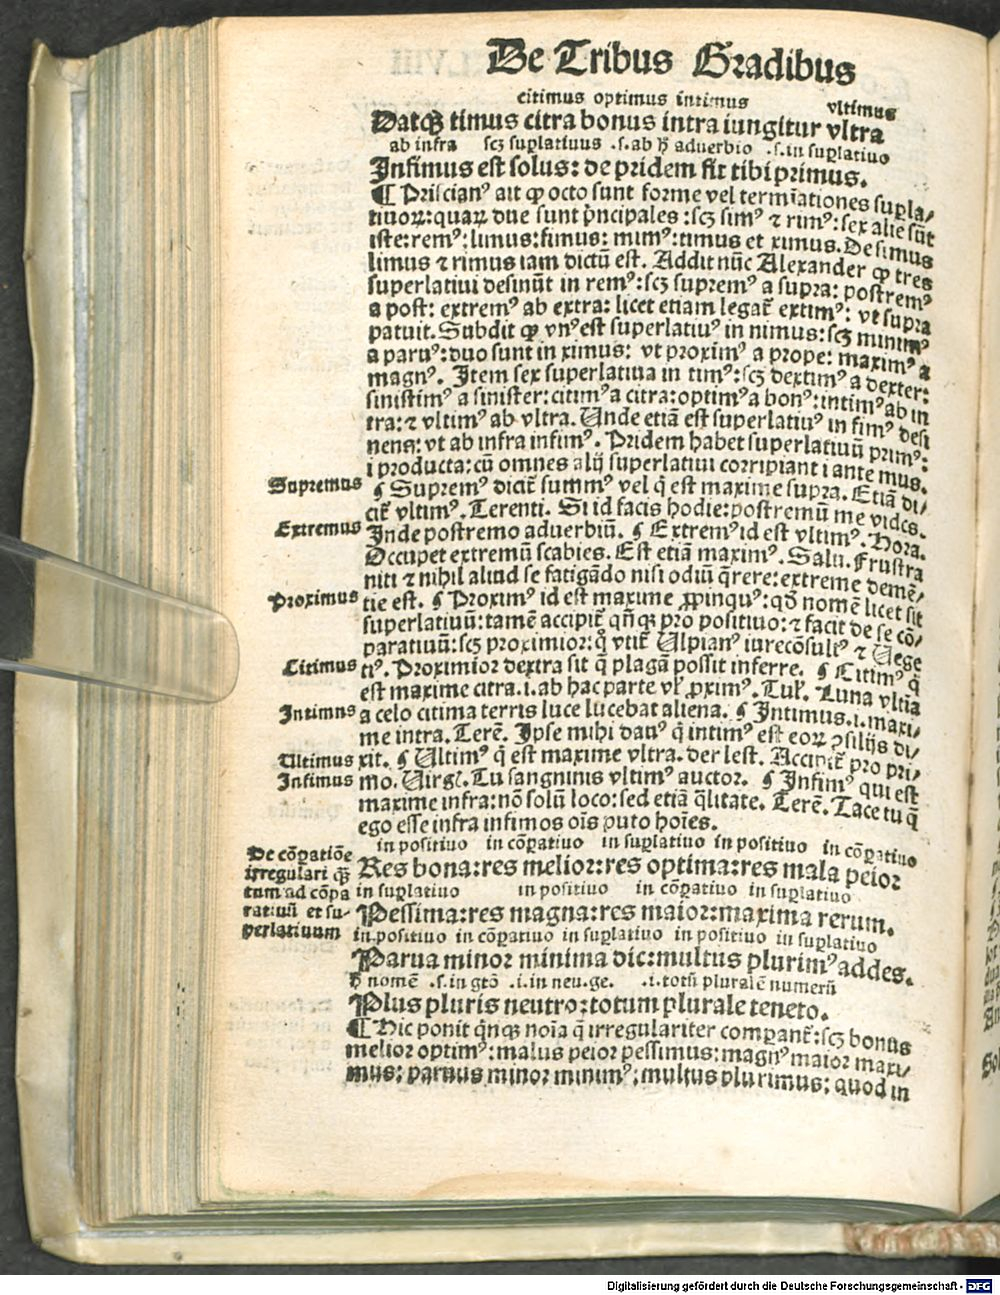 De Tribus Gradibus
citimus optimus intimus vltimus
Datqꝫ timus citra bonus intra iungitur vltra
ab infra scꝫ suꝑlatiuus .s. ab ꝧ aduerbio .s. in suꝑlatiuo
Infimus est solus: de pridem fit tibi primus.
¶ Priscianꝰ ait ꝙ octo sunt forme vel termīationes suꝑla/
tiuoꝝ: quaꝝ due sunt p̄ncipales : scꝫ simꝰ ⁊ rimꝰ: sex alie sūt
iste: remꝰ: limus: fimus: mimꝰ: timus et ximus. De simus
limus ⁊ rimus iam dictū est. Addit nūc Alexander ꝙ tres
superlatiui desinūt in remꝰ: scꝫ supremꝰ a supra: postremꝰ
a post: extremꝰ ab extra: licet etiam legat̄ extimꝰ: vt supra
patuit. Subdit ꝙ vnꝰ est superlatiuꝰ in nimus: scꝫ minimꝰ
a paruꝰ: duo sunt in ximus: vt proximꝰ a prope: maximꝰ a
magnꝰ. Item sex superlatiua in timꝰ: scꝫ dextimꝰ a dexter:
sinistimꝰ a sinister: citimꝰ a citra: optimꝰ a bonꝰ: intimꝰ ab in
tra: ⁊ vltimꝰ ab vltra. Unde etiā est superlatiuꝰ in fimꝰ desi
nens: vt ab infra infimꝰ. Pridem habet superlatiuū primꝰ:
i producta: cū omnes alij superlatiui corripiant i ante mus.
Supremus ¶ Supremꝰ dicit̄ summꝰ vel q̄ est maxime supra. Etiā di/
cit̄ vltimꝰ. Terenti. Si id facis hodie: postremū me vides.
Extremus Inde postremo aduerbiū. ¶ Extremꝰ id est vltimꝰ. Hora.
Occupet extremū scabies. Est etiā maximꝰ. Salu. Frustra
niti ⁊ nihil aliud se fatigādo nisi odiū q̄rere: extreme demē/
Proximus tie est. ¶ Proximꝰ id est maxime ꝓpinquꝰ: qđ nomē licet sit
superlatiuū: tamē accipit̄ qn̄qꝫ pro positiuo: ⁊ facit de se cō/
paratiuū: scꝫ proximior: q̄ vtit̄ Ulpianꝰ iurecōsultꝰ ⁊ Uege
Citimus tiꝰ. Proximior dextra sit q̄ plagā possit inferre. ¶ Citimꝰ q̄
est maxime citra .i. ab hac parte vl̓ ꝓximꝰ. Tul̓. Luna vltīa
Intimns a celo citima terris luce lucebat aliena. ¶ Intimus .i. maxi/
me intra. Terē. Ipse mihi datꝰ q̄ intimꝰ est eoꝝ ꝯsilijs di/
Ultimus xit. ¶ Ultimꝰ q̄ est maxime vltra. der lest. Accipit̄ pro pri/
Infimus mo. Uirgl̓. Tu sangninis vltimꝰ auctor. ¶ Infimꝰ qui est
maxime infra: nō solū loco: sed etiā q̄litate. Terē. Tace tu q̄
ego esse infra infimos oīs puto hoīes.
in positiuo in cōꝑatiuo in suꝑlatiuo in positiuo in cōꝑatiuo
De cōꝑatiōe Res bona: res melior: res optima: res mala peior
irregulari qꝫ in suꝑlatiuo in positiuo in cōꝑatiuo in suꝑlatiuo
tum ad cōpa
ratiuū et su- Pessima: res magna: res maior: maxima rerum.
perlatiuum in positiuo in cōꝑatiuo in suꝑlatiuo in positiuo in suꝑlatiuo
Parua minor minima dic: multus plurimꝰ addes.
ꝧ nomē .s. in gtō .i. in neu. ge. .i. totū pluralē numerū
Plus pluris neutro: totum plurale teneto.
¶ Hic ponit q̄nqꝫ noīa q̄ irregulariter comparant̄: scꝫ bonus
melior optimꝰ: malus peior pessimus: magnꝰ maior maxi/
mus: paruus minor minimꝰ: multus plurimus: quod in
Digitalisierung gefördert durch die Deutsche Forschungsgemeinschaft - DFG